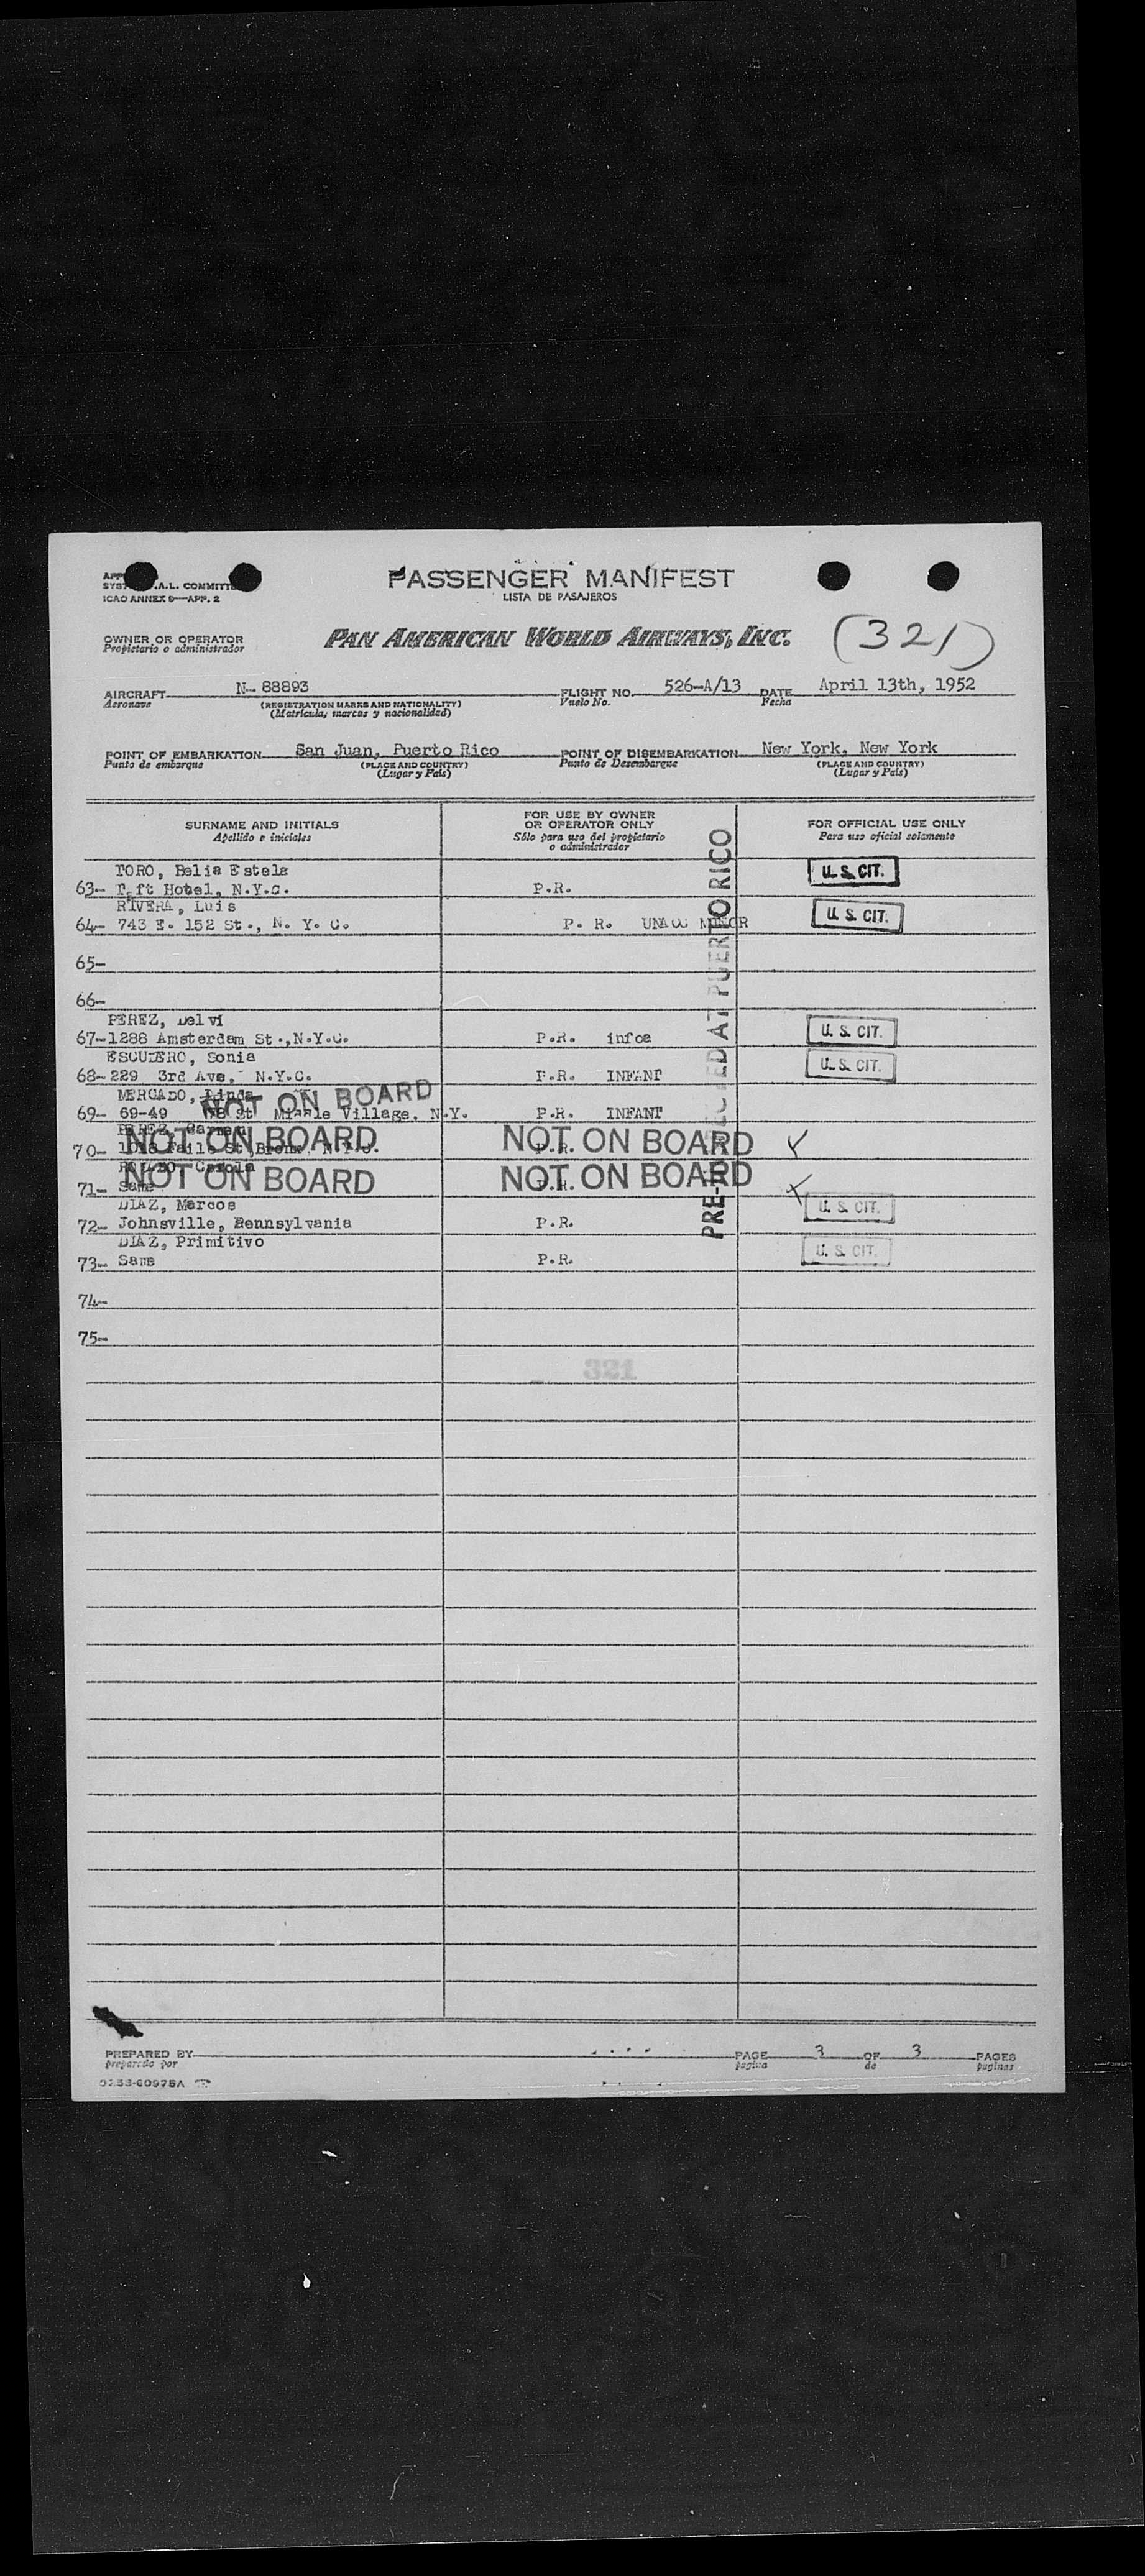 PASSENGER MANIFEST
LISTA DE PASAJEROS
ICAO ANNEX 9—APP. 2
OWNER OR OPERATOR
Propietario o administrador
PAN AMERICAN WORLD AIRWAYS, INC.
(321)
AIRCRAFT N- 88893 FLIGHT NO. 526-A/13 DATE April 13th, 1952
Aeronave (REGISTRATION MARKS AND NATIONALITY) Vuelo No. Fecha
(Matricula, marcas y nacionalidad)
POINT OF EMBARKATION San Juan, Puerto Rico POINT OF DISEMBARKATION New York, New York
Punto de embarque (PLACE AND COUNTRY) Punto de Desembarque (PLACE AND COUNTRY)
(Lugar y Pais) (Lugar y Pais)
SURNAME AND INITIALS
Apellido e iniciales
FOR USE BY OWNER
OR OPERATOR ONLY
Sólo para uso del propietario
o administrador
FOR OFFICIAL USE ONLY
Para uso oficial solamente
TORO, Belia Estela
63- Taft Hotel, N.Y.C. P.R. U. S. CIT.
RIVERA, Luis
64- 743 E. 152 St., N. Y. C. P. R. MINOR U. S. CIT.
65-
66-
PEREZ, Delvi
67- 1288 Amsterdam St., N.Y.C. P.R. U. S. CIT.
ESCUDERO, Sonia
68- 229 3rd Ave, N.Y.C. P.R. INFANT U. S. CIT.
MERCADO, Linda
NOT ON BOARD
69- 69-49 St Middle Village, N.Y. P.R. INFANT
PEREZ, Carmen
NOT ON BOARD NOT ON BOARD
70- St Bronx, N.Y.C. P.R.
Carola
NOT ON BOARD NOT ON BOARD
71- Same P.R.
DIAZ, Marcos
72- Johnsville, Pennsylvania P.R. U. S. CIT.
DIAZ, Primitivo
73- Same P.R. U. S. CIT.
74-
75-
PRE-INSPECTED AT PUERTO RICO
321
PREPARED BY PAGE 3 OF 3 PAGES
preparado por pagina de paginas